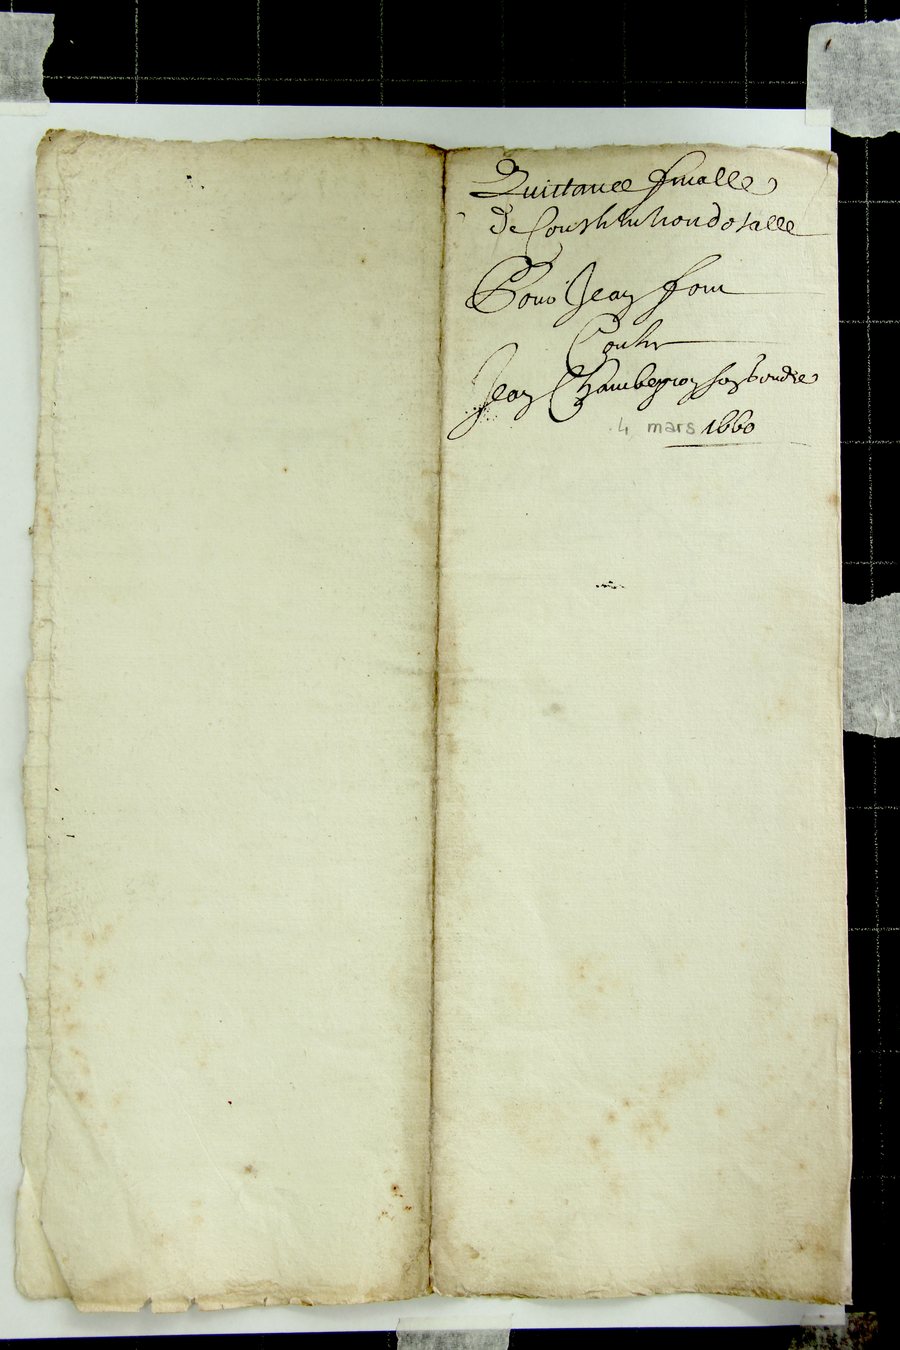 Quittance finalle
De Constitution dotalle
Pour Jean font
Contre
Jean Chamberon son b
4 mars 1660